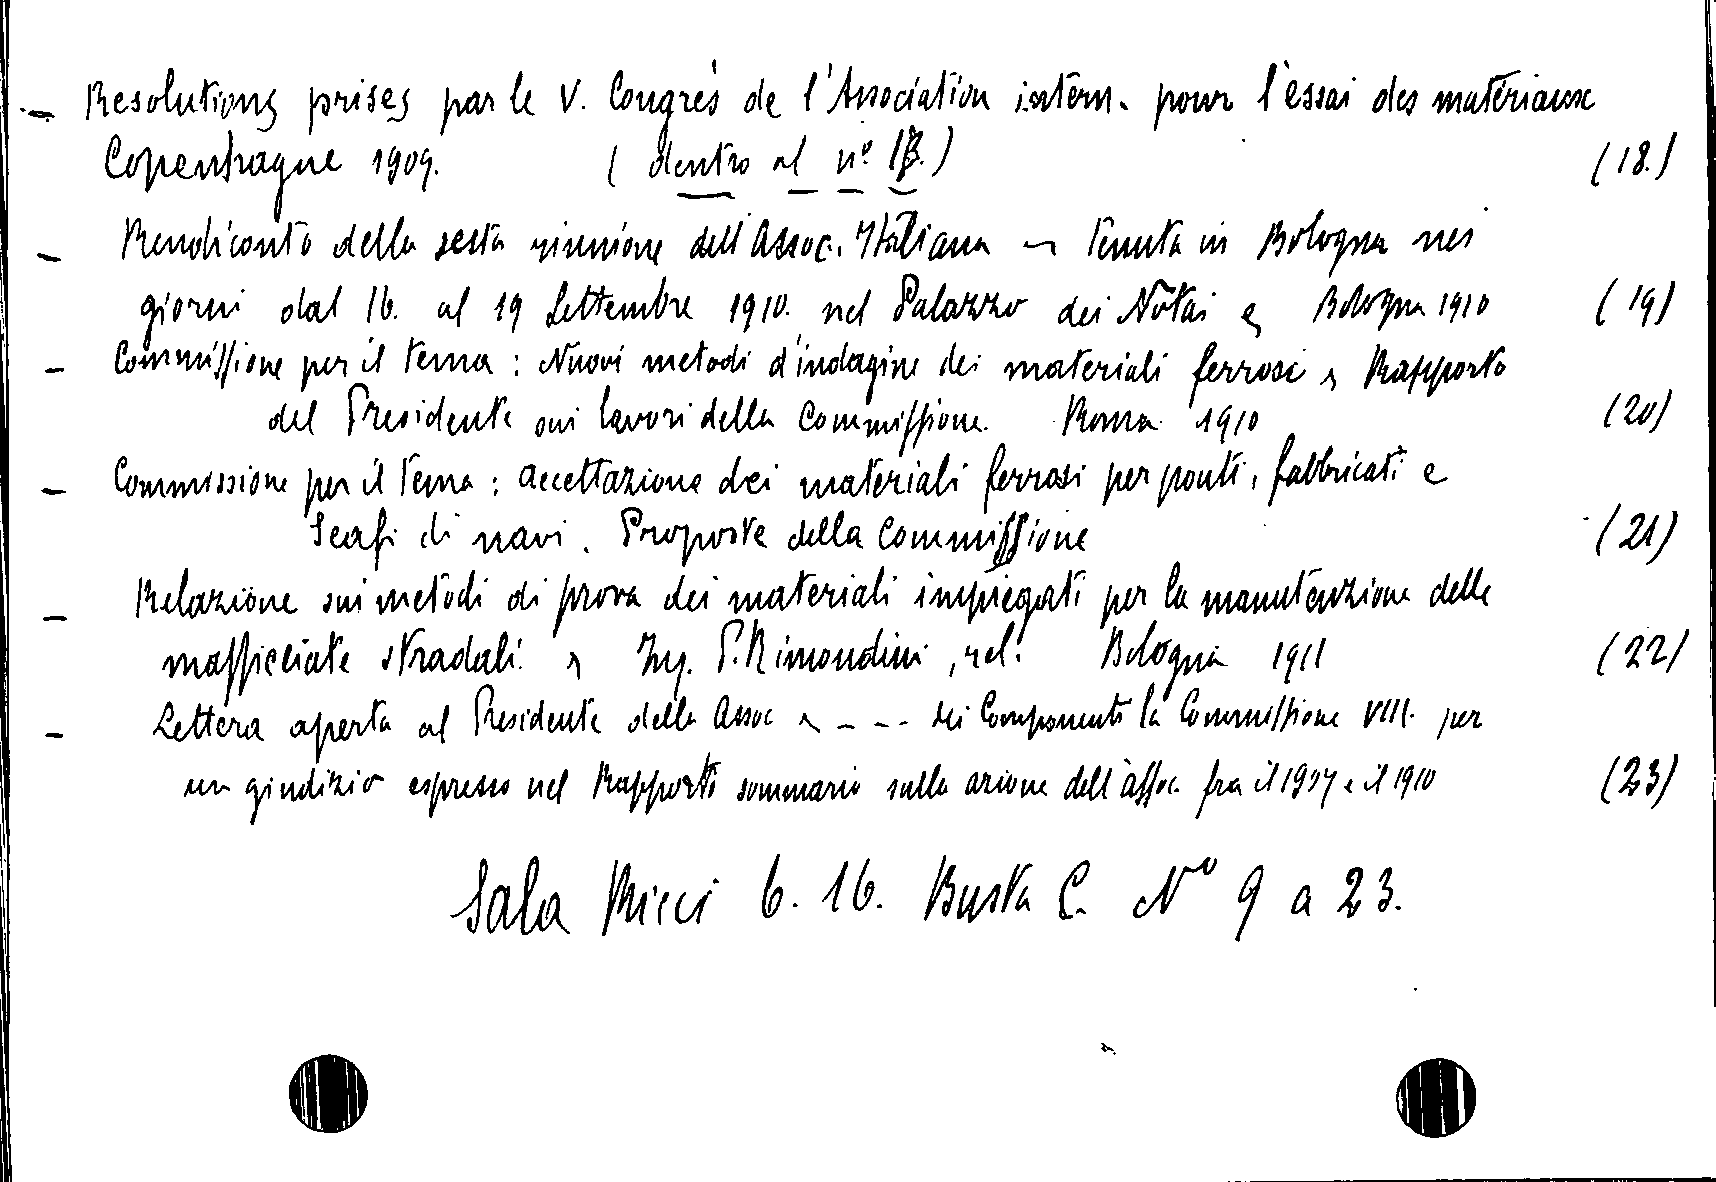 - Resolutions prises par le V. Congrès de l'Association intern. pour l'essai des matériaux
Copenhague 1909. ( dentro al n° 17.) (18.)
- Rendiconto della sesta riunione dell'Assoc. Italiana ~ tenuta in Bologna nei
giorni dal 16. al 19 Settembre 1910. nel Palazzo dei Notai Bologna 1910 (19)
- Commissione per il tema : Nuovi metodi d'indagine dei materiali ferrosi Rapporto
del Presidente sui lavori della Commissione. Roma 1910 (20)
- Commissione per il tema : accettazione dei materiali ferrosi per ponti, fabbricati e
Scafi di navi. Proposte della Commissione (21)
- Relazione sui metodi di prova dei materiali impiegati per la manutenzione delle
massicciate stradali. Ing. P. Rimondini, rel. Bologna 1911 (22)
- Lettera aperta al Presidente della Assoc ~ - - - dei Componenti la Commissione VIII. per
un giudizio espresso nel Rapporto sommario sulla azione dell'assoc. fra il 1907 e il 1910 (23)
Sala Ricci 6. 16. Busta C. N° 9 a 23.